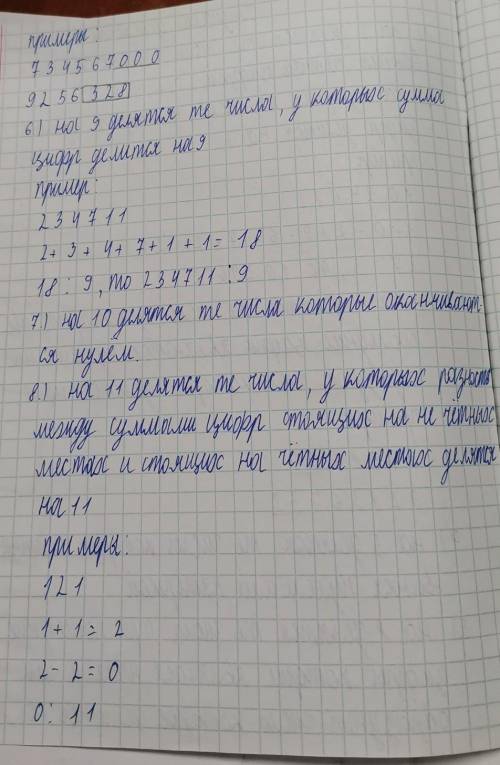 примеры:
734567000
9256328
6) на 9 делятся те числа, у которых сумма
цифр делится на 9
пример:
234711
2+3+4+7+1+1=18
18 ⋮ 9, то 234711 ⋮ 9
7.) на 10 делятся те числа которые оканчивают-
ся нулём.
8.) на 11 делятся те числа, у которых разность
между суммыми цифр стоящих на не чётных
местах и стоящих на чётных местах делятся
на 11
примеры:
121
1+1=2
2-2=0
0 ⋮ 11